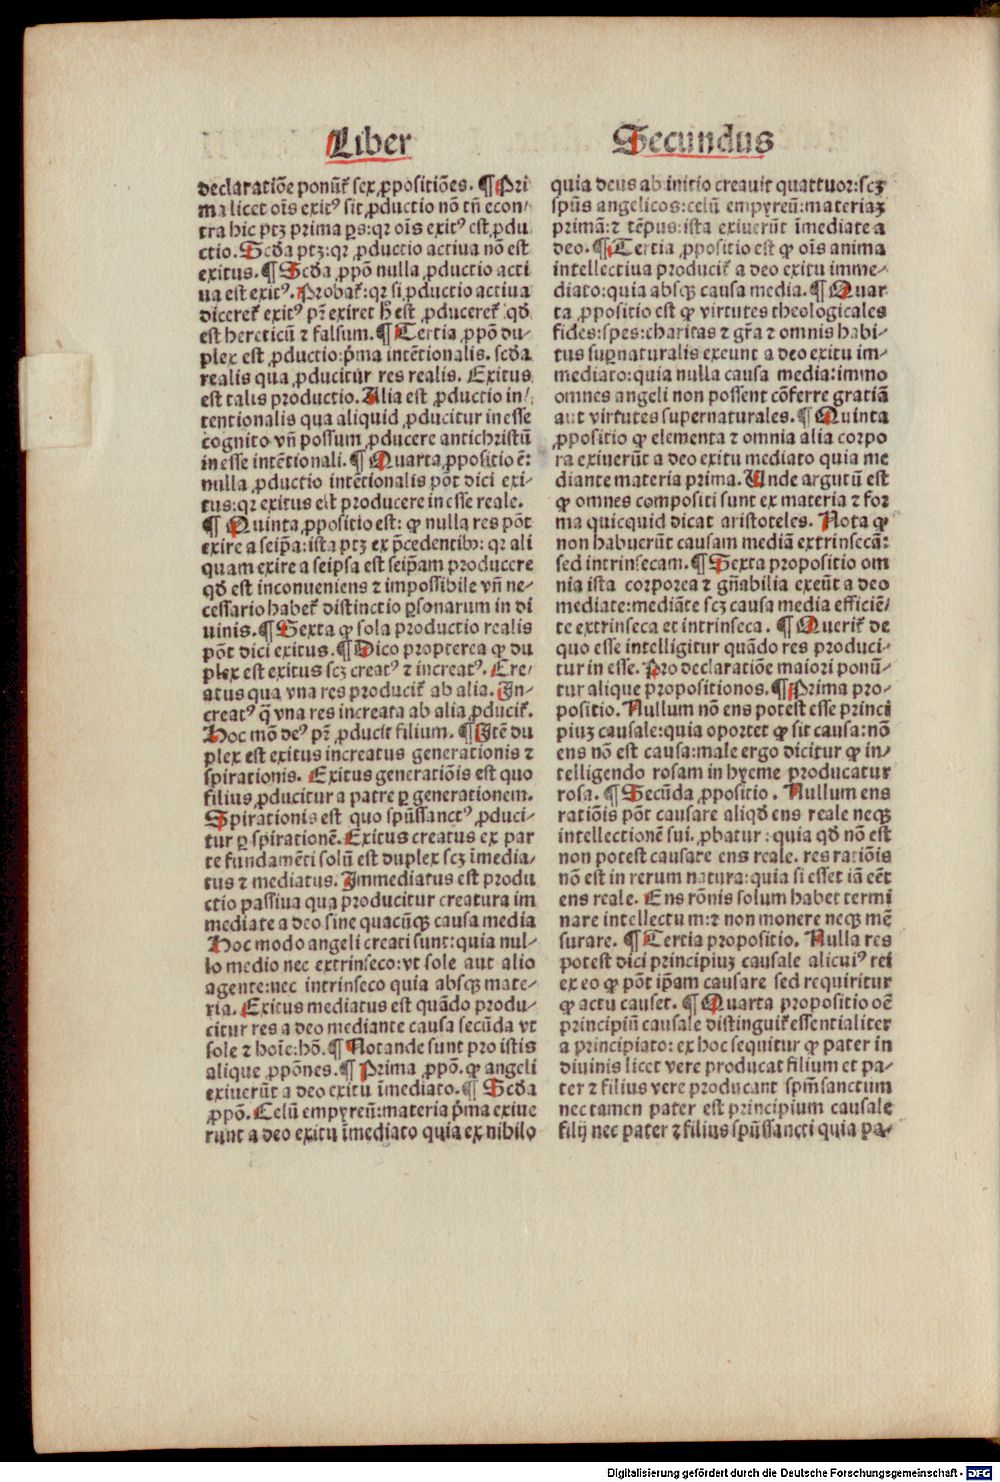 Liber Secundus
declaratiōe ponūt᷑ sex ꝓpositiōes. ¶ Pri
ma licet oīs exitꝰ sit ꝓductio nō tn̄ econ⸗
tra hic ptꝫ prima ꝑs: qꝛ oīs exitꝰ est ꝓdu
ctio. Scd̄a ptꝫ: qꝛ ꝓductio actiua nō est
exitus. ¶ Scd̄a ꝓpō nulla ꝓductio acti
ua est exitꝰ. Probat᷑: qꝛ si ꝓductio actiua
diceret᷑ exitꝰ pr̄ exiret h̄ est ꝓduceret᷑ qd̄
est hereticū ⁊ falsum. ¶ Tertia ꝓpō du⸗
plex est ꝓductio: p̄ma intētionalis. scd̄a
realis qua ꝓducitur res realis. Exitus
est talis productio. Alia est ꝓductio in⸗
tentionalis qua aliquid ꝓducitur in esse
cognito vn̄ possum ꝓducere antichristū
in esse intētionali. ¶ Quarta ꝓpositio ē:
nulla ꝓductio intētionalis pōt dici exi⸗
tus: qꝛ exitus est producere in esse reale.
¶ Quinta ꝓpositio est: ꝙ nulla res pōt
exire a seip̄a: ista ptꝫ ex p̄cedentibꝰ: qꝛ ali
quam exire a seipsa est seip̄am producere
qd̄ est inconueniens ⁊ impossibile vn̄ ne⸗
cessario habet᷑ distinctio ꝑsonarum in di
uinis. ¶ Sexta ꝙ sola productio realis
pōt dici exitus. ¶ Dico propterea ꝙ du
plex est exitus scꝫ creatꝰ ⁊ increatꝰ. Cre⸗
atus qua vna res producit᷑ ab alia. In⸗
creatꝰ q̄ vna res increata ab alia ꝓducit᷑.
Hoc mō deꝰ pr̄ ꝓducit filium. ¶ Itē du
plex est exitus increatus generationis ⁊
spirationis. Exitus generatiōis est quo
filius ꝓducitur a patre ꝑ generationem.
Spirationis est quo spūssanctꝰ ꝓduci⸗
tur ꝑ spirationē. Exitus creatus ex par
te fundamēti solū est duplex scꝫ īmedia⸗
tus ⁊ mediatus. Immediatus est produ
ctio passiua qua producitur creatura im
mediate a deo sine quacūqꝫ causa media
Hoc modo angeli creati sunt: quia nul⸗
lo medio nec extrinseco: vt sole aut alio
agente: nec intrinseco quia absqꝫ mate⸗
ria. Exitus mediatus est quādo produ⸗
citur res a deo mediante causa secūda vt
sole ⁊ hoīe: hō. ¶ Notande sunt pro istis
alique ꝓpōnes. ¶ Prima ꝓpō. ꝙ angeli
exiuerūt a deo exitu īmediato. ¶ Scd̄a
ꝓpō. Celū empyreū: materia p̄ma exiue
runt a deo exitu īmediato quia ex nihilo
quia deus ab initio creauit quattuor: scꝫ
spūs angelicos: celū empyreū: materiaꝫ
primā: ⁊ tēpus: ista exiuerūt īmediate a
deo. ¶ Tertia ꝓpositio est ꝙ oīs anima
intellectiua producit᷑ a deo exitu imme⸗
diato: quia absqꝫ causa media. ¶ Quar
ta ꝓpositio est ꝙ virtutes theologicales
fides: spes: charitas ⁊ gr̄a ⁊ omnis habi⸗
tus suꝑnaturalis exeunt a deo exitu im⸗
mediato: quia nulla causa media: immo
omnes angeli non possent cōferre gratiā
aut virtutes supernaturales. ¶ Quinta
ꝓpositio ꝙ elementa ⁊ omnia alia corpo
ra exiuerūt a deo exitu mediato quia me
diante materia prima. Unde argutū est
ꝙ omnes compositi sunt ex materia ⁊ for
ma quicquid dicat aristoteles. Nota ꝙ
non habuerūt causam mediā extrinsecā:
sed intrinsecam. ¶ Sexta propositio om
nia ista corporea ⁊ gn̄abilia exeūt a deo
mediate: mediāte scꝫ causa media efficiē⸗
te extrinseca et intrinseca. ¶ Querit᷑ de
quo esse intelligitur quādo res produci⸗
tur in esse. Pro declaratiōe maiori ponū⸗
tur alique propositionos. ¶ Prima pro⸗
positio. Nullum nō ens potest esse princi
piuꝫ causale: quia oportet ꝙ sit causa: nō
ens nō est causa: male ergo dicitur ꝙ in⸗
telligendo rosam in hyeme producatur
rosa. ¶ Secūda ꝓpositio. Nullum ens
ratiōis pōt causare aliqd̄ ens reale neqꝫ
intellectionē sui. ꝓbatur: quia qd̄ nō est
non potest causare ens reale. res ratiōis
nō est in rerum natura: quia si esset iā eēt
ens reale. Ens rōnis solum habet termi
nare intellectum: ⁊ non monere neqꝫ mē
surare. ¶ Tertia propositio. Nulla res
potest dici principiuꝫ causale alicuiꝰ rei
ex eo ꝙ pōt ip̄am causare sed requiritur
ꝙ actu causet. ¶ Quarta propositio oē
principiū causale distinguit᷑ essentialiter
a principiato: ex hoc sequitur ꝙ pater in
diuinis licet vere producat filium et pa⸗
ter ⁊ filius vere producant spm̄sanctum
nec tamen pater est principium causale
filij nec pater ⁊ filius spūssancti quia pa⸗
Digitalisierung gefördert durch die Deutsche Forschungsgemeinschaft - DFG